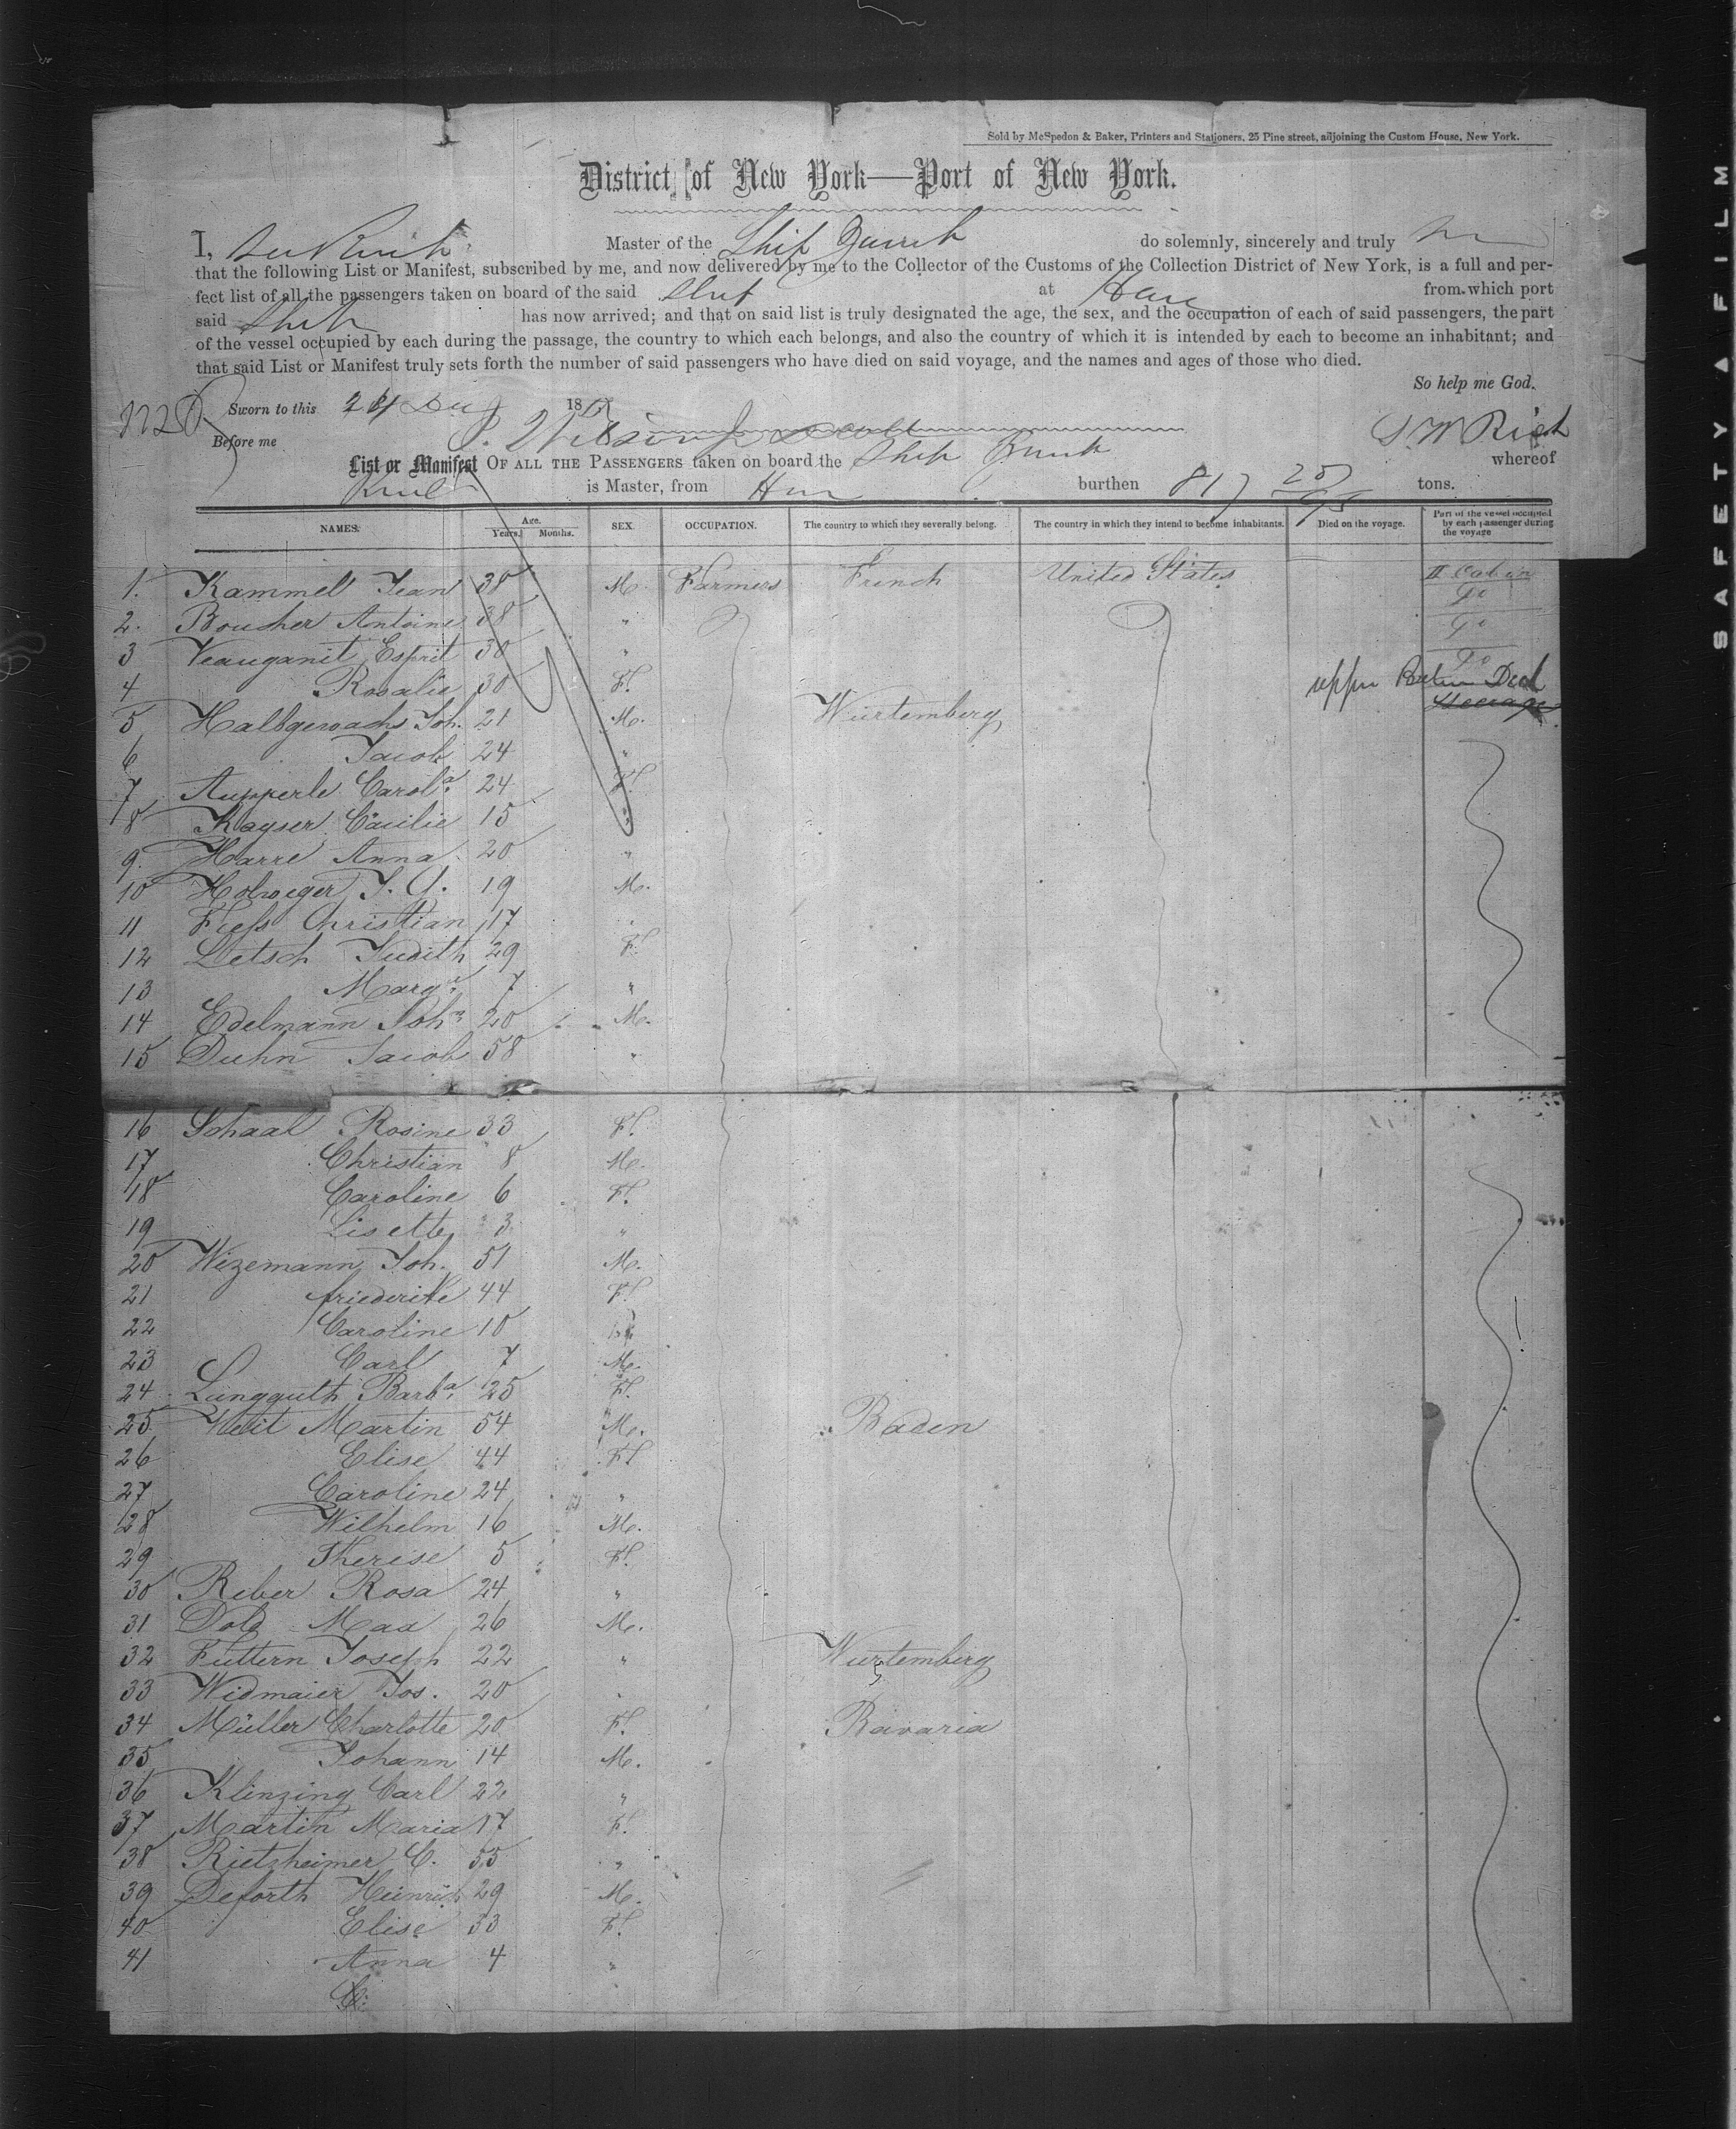 Sold by McSpedon & Baker, Printers and Stationers, 25 Pine street, adjoining the Custom House, New York.
District of New York—Port of New York.
I, Master of the Ship do solemnly, sincerely and truly
that the following List or Manifest, subscribed by me, and now delivered by me to the Collector of the Customs of the Collection District of New York, is a full and per-
fect list of all the passengers taken on board of the said Ship at from which port
said Ship has now arrived; and that on said list is truly designated the age, the sex, and the occupation of each of said passengers, the part
of the vessel occupied by each during the passage, the country to which each belongs, and also the country of which it is intended by each to become an inhabitant; and
that said List or Manifest truly sets forth the number of said passengers who have died on said voyage, and the names and ages of those who died.
So help me God.
Sworn to this 24 18
Before me S W Rich
List or Manifest OF ALL THE PASSENGERS taken on board the Ship whereof
is Master, from burthen 817 tons.
NAMES. Age. Years. Months. SEX. OCCUPATION. The country to which they severally belong. The country in which they intend to become inhabitants. Died on the voyage. Part of the vessel occupied by each passenger during the voyage
1. Kammel Jean 38 M. Farmers French United States II Cabin
2. Boucher Antoine 38 " Do
3 Esprit 30 " Do
4 Rosalie 30 F. Do
5 Halbgewachs Joh. 21 M. Würtemberg upper Between Deck Steerage
6 Jacob 24 "
7 Aupperle Carol.a 24 F.
8 Kayser Cäcilie 15 "
9. Harre Anna 20 "
10 Holweger J. G. 19 M.
11 Fiess Christian 17 "
12 Letsch Judith 29 F.
13 Marg.a 7 "
14 Edelmann Joh.s 20 M.
15 Duhn Jacob 58 "
16 Schaal Rosine 33 F.
17 Christian 8 M.
18 Caroline 6 F.
19 Lisette 3 "
20 Wizemann Joh. 51 M.
21 friederike 44 F.
22 Caroline 10
23 Carl 7 M.
24 Langguth Barb.a 25 F.
25 Veit Martin 54 M. Baden
26 Elise 44 F.
27 Caroline 24 "
28 Wilhelm 16 M.
29 Therise 5 F.
30 Reber Rosa 24 "
31 Dold Max 26 M.
32 Futtern Joseph 22 " Würtemberg
33 Widmaier Jos. 20 "
34 Müller Charlotte 20 F. Bavaria
35 Johann 14 M.
36 Klinzing Carl 22 "
37 Martin Maria 17 F.
38 Rietzheimer C. 55 "
39 Deforth Heinrich 29 M.
40 Elise 33 F.
41 Anna 4 "
SAFETY FILM